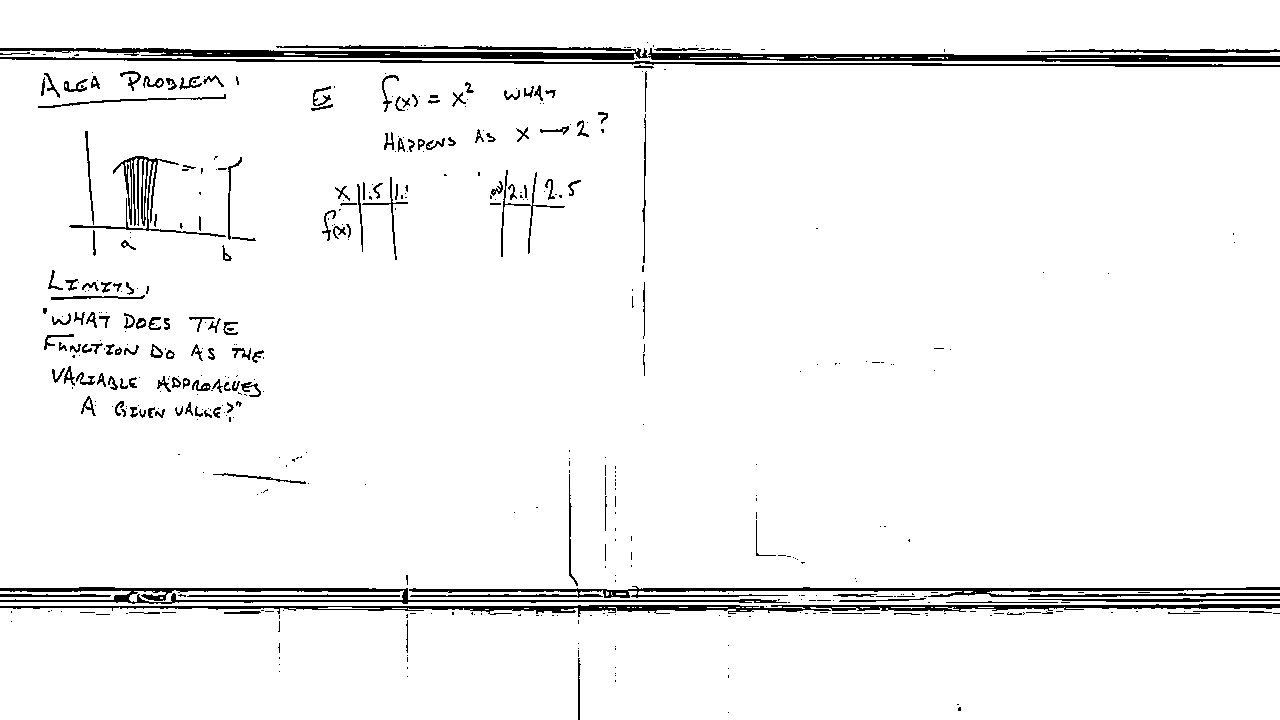 AREA PROBLEM:
a b
LIMITS:
"WHAT DOES THE
FUNCTION DO AS THE
VARIABLE APPROACHES
A GIVEN VALUE?"
Ex f(x) = x² WHAT
HAPPENS AS x → 2?
x 1.5 2.1 2.5
f(x)